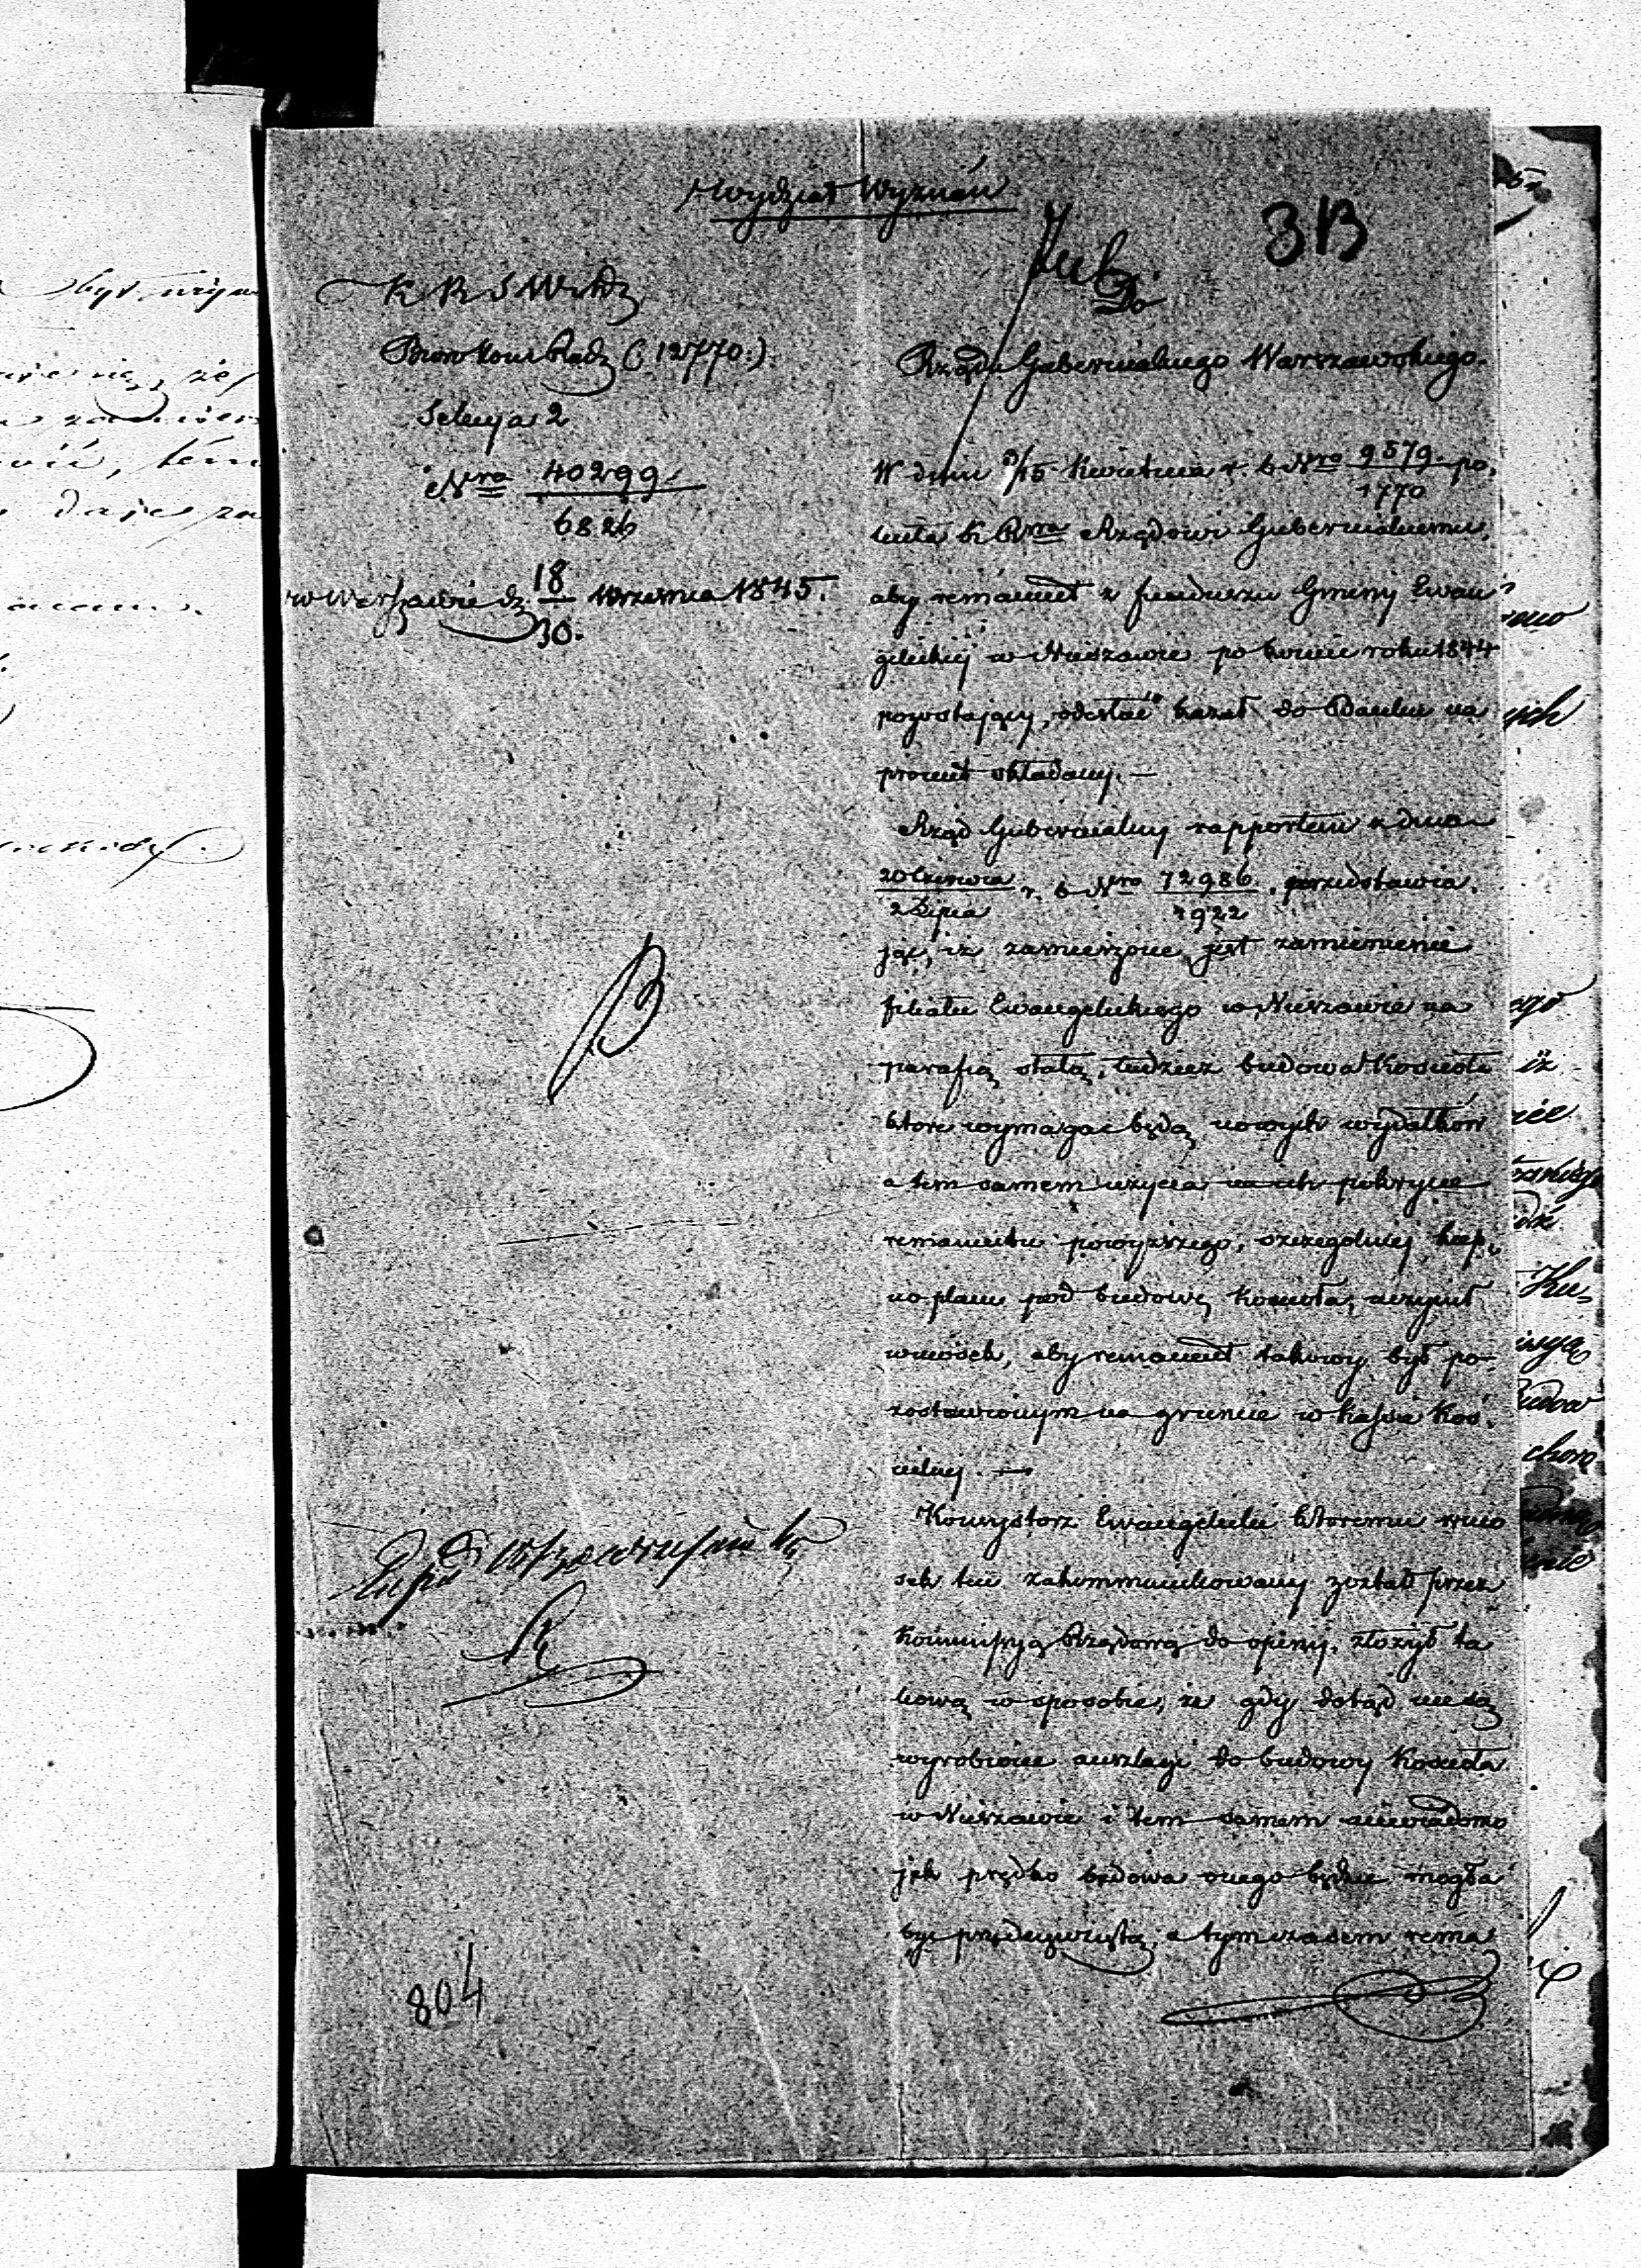 Wydział Wyznań
3B
Do
K R S W i D
(: 12770 :)
Rządu Gubernialnego Warszawskiego.
Sekcya 2
Nro 40299.
6826
w Warszawie d. 18 Września 1845.
30.
W dniu 3/15 Kwietnia r. b. Nro 9579. po,
1770
leciła K Rwa Rządowi Gubernialnemu,
aby remanent z funduszu Gminy Ewan
gelickiej w Nieszawie po koniec roku 1844
pozostający, odesłać kazał do Banku na
procent składany. —
Rząd Gubernialny rapportem z dnia
20 Czerwca r. b. Nro 72986, przedstawia,
2 Lipca 1922
jąc, iż zamierzone jest zamienienie
filiału Ewangelickiego w Nieszawie na
parafią stałą, tudzież budowa Kościoła
które wymagać będą nowych wydatków
a tem samem użycia na ich pokrycie
remanentu powyższego, szczególniej kup,
no placu pod budowę Kościoła, uczynił
wniosek, aby remanent takowy był po-
zostawionym na gruncie w kassie Koś,
cielnej. —
Konsystorz Ewangelicki któremu wnio
sek ten zakommunikowany został przez
Kommissyą Rządową do opinij, złożył ta
kową w sposobie, że gdy dotąd nie są
wyrobione anszlagi do budowy Kościoła
w Nieszawie i tem samem niewiadomo
jak prędko budowa onego będzie mogła
być przedsięwziętą, a tymczasem rema
804